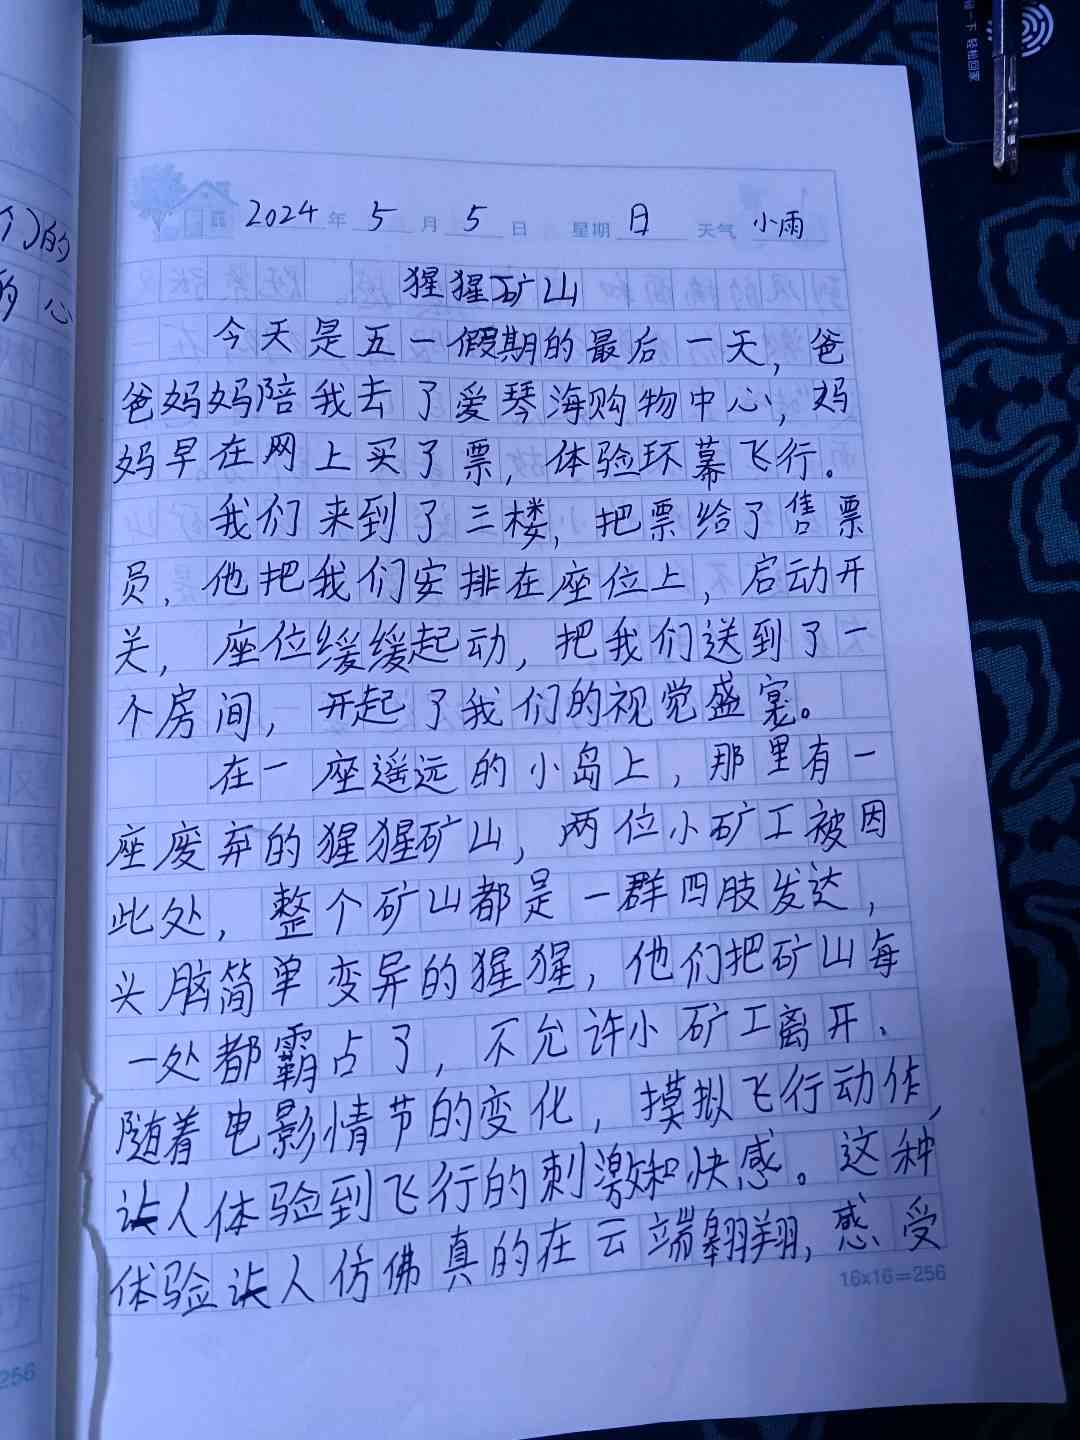 2024年5月5日 星期日 天气小雨
猩猩矿山
今天是五一假期的最后一天，爸
爸妈妈陪我去了爱琴海购物中心，妈
妈早在网上买了票，体验环幕飞行。
我们来到了三楼，把票给了售票
员，他把我们安排在座位上，启动开
关，座位缓缓起动，把我们送到了一
个房间，开起了我们的视觉盛宴。
在一座遥远的小岛上，那里有一
座废弃的猩猩矿山，两位小矿工被因
此处，整个矿山都是一群四肢发达，
头脑简单变异的猩猩，他们把矿山每
一处都霸占了，不允许小矿工离开、
随着电影情节的变化，摸拟飞行动作，
让人体验到飞行的刺激和快感。这种
体验让人仿佛真的在云端翱翔，感受
16x16=256
们的
的心
256
一下 轻松回家